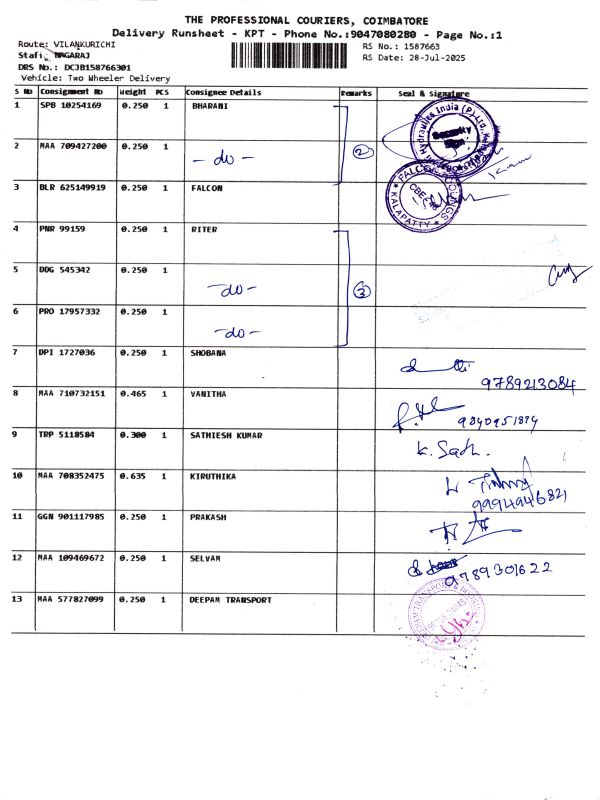 THE PROFESSIONAL COURIERS, COIMBATORE
Delivery Runsheet - KPT - Phone No.:9047080280 - Page No.:1
Route: VILANKURICHI
RS No.: 1587663
Staff: NAGARAJ
RS Date: 28-Jul-2025
DRS No.: DCJB158766301
Vehicle: Two Wheeler Delivery
S No Consignment No Weight PCS Consignee Details Remarks Seal & Signature
1 SPB 10254169 0.250 1 BHARANI
Hydraulics India (P) Ltd.
Security
2 MAA 709427200 0.250 1 - do - 2
3 BLR 625149919 0.250 1 FALCON
FALCON
CBE
KALAPATTY
4 PNR 99159 0.250 1 RITER
5 DDG 545342 0.250 1 - do - 3
6 PRO 17957332 0.250 1 - do -
7 DPI 1727036 0.250 1 SHOBANA
9789213084
8 MAA 710732151 0.465 1 VANITHA
9840951874
9 TRP 5118584 0.300 1 SATHIESH KUMAR
K. Sath.
10 MAA 708352475 0.635 1 KIRUTHIKA
9994946821
11 GGN 901117985 0.250 1 PRAKASH
12 MAA 109469672 0.250 1 SELVAM
9789301622
13 MAA 577827099 0.250 1 DEEPAM TRANSPORT